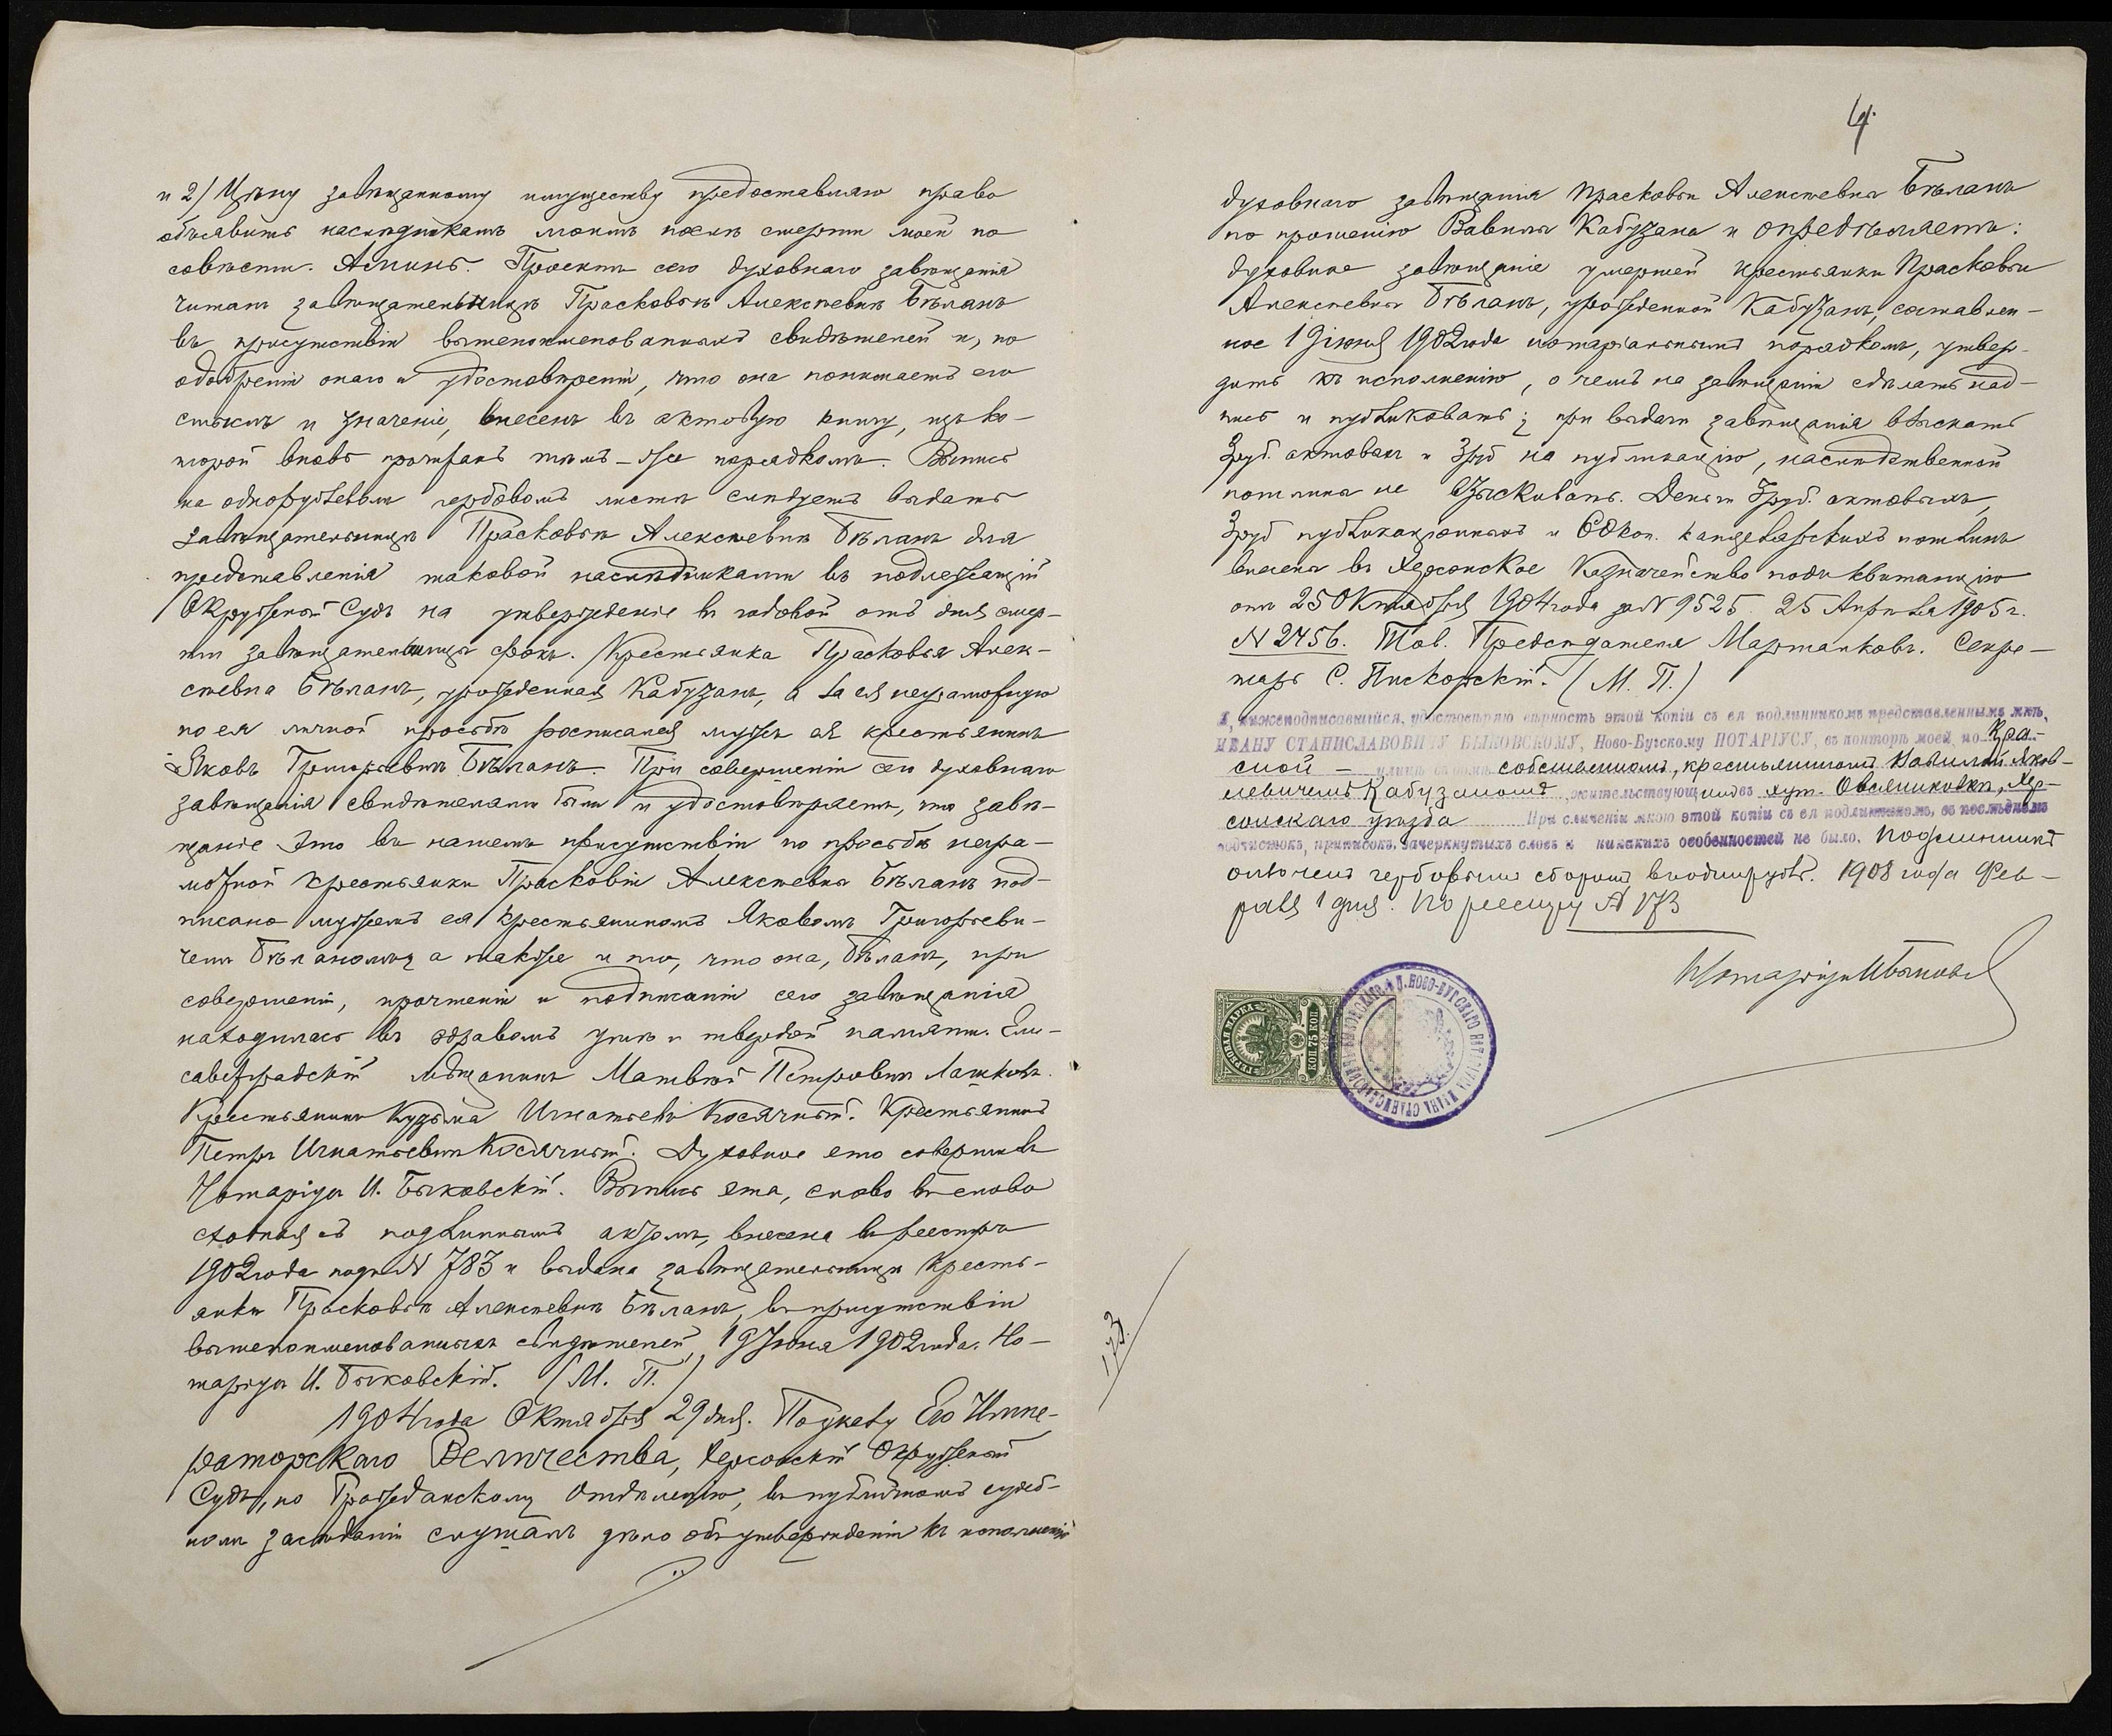 и 2/ Цѣну завѣщанному имуществу предоставляю право
объявить наслѣдникамъ моимъ послѣ смерти моей по
совѣсти. Аминь. Проектъ сего духовнаго завѣщанія
читанъ завѣщательницѣ Прасковьѣ Алексѣевнѣ Бѣланъ
въ присутствіи вышепоименованныхъ свидѣтелей и, по
одобреніи онаго и удостовѣреніи, что она понимаетъ его
смыслъ и значеніе, внесенъ въ актовую книгу, изъ ко-
торой вновь прочитанъ тѣмъ-же порядкомъ. Выпись
на однорублевомъ гербовомъ листѣ слѣдуетъ выдать
завѣщательницѣ Прасковьѣ Алексѣевнѣ Бѣланъ для
представленія таковой наслѣдниками въ подлежащій
Окружный Судъ на утвержденіе въ годовой отъ дня смер-
ти завѣщательницы срокъ. Крестьянка Прасковья Алек-
сѣевна Бѣланъ, урожденная Кабузанъ, а за ея неграмотную
по ея личной просьбѣ росписался мужъ ея крестьянинъ
Яковъ Григорьевичъ Бѣланъ. При совершеніи сего духовнаго
завѣщанія свидѣтелями были и удостовѣряемъ, что завѣ-
щаніе это въ нашемъ присутствіи по просьбѣ негра-
мотной крестьянки Прасковіи Алексѣевны Бѣланъ под-
писано мужемъ ея крестьяниномъ Яковомъ Григорьеви-
чемъ Бѣланомъ, а также и то, что она, Бѣланъ, при
совершеніи, прочтеніи и подписаніи сего завѣщанія
находилась въ здравомъ умѣ и твердой памяти. Ели-
саветградскій мѣщанинъ Матвѣй Петровичъ Лашковъ.
Крестьянинъ Кузьма Игнатьевъ Косячный. Крестьянинъ
Петръ Игнатьевичъ Косячный. Духовное это совершилъ
Нотаріусъ И. Быковскій. Выпись эта, слово въ слово
сходная съ подлиннымъ актомъ, внесена въ реестръ
1902 года подъ N 783 и выдана завѣщательницѣ кресть-
янкѣ Прасковьѣ Алексѣевнѣ Бѣланъ, въ присутствіи
вышепоименованныхъ свидѣтелей, 19 Іюня 1902 года. Но-
таріусъ И. Быковскій. (М. П.)
1904 года Октября 29 дня. По указу Его Импе-
раторскаго Величества, Херсонскій Окружный
Судъ, по Гражданскому Отдѣленію, въ публичномъ судеб-
номъ засѣданіи слушалъ дѣло объ утвержденіи къ исполненію
173.
4.
духовнаго завѣщанія Прасковьи Алексѣевны Бѣланъ
по прошенію Вавилы Кабузана и опредѣляетъ:
духовное завѣщаніе умершей крестьянки Прасковьи
Алексѣевны Бѣланъ, урожденной Кабузанъ, составлен-
ное 19 іюня 1902 года нотаріальнымъ порядкомъ, утвер-
дить къ исполненію, о чемъ на завѣщаніи сдѣлать над-
пись и публиковать; при выдачи завѣщанія взыскать
3 руб. актовыхъ и 3 руб на публикацію, наслѣдственной
пошлины не взыскивать. Деньги 3 руб. актовыхъ,
3 руб публикаціонныхъ и 60 коп. канцелярскихъ пошлинъ
внесены въ Херсонское Казначейство подъ квитанцію
отъ 25 Октября 1904 года за N 9525. 25 Апрѣля 1905 г.
N 2456. Тов. Предсѣдателя Мартанковъ. Секре-
тарь С. Пискорскій. (М. П.)
Я, нижеподписавшійся, удостовѣряю вѣрность этой копіи съ ея подлинникомъ представленнымъ мнѣ,
ИВАНУ СТАНИСЛАВОВИЧУ БЫКОВСКОМУ, Ново-Бугскому НОТАРІУСУ, въ конторѣ моей, по Кра-
сной – улицѣ въ домѣ собственномъ, крестьяниномъ Вавилой Яков-
левичемъ Кабузаномъ, жительствующимъ въ хут. Овсяниковкѣ, Хер-
сонскаго уѣзда При сличеніи мною этой копіи съ ея подлинникомъ, въ послѣднемъ
подчистокъ, приписокъ, зачеркнутыхъ словъ и никакихъ особенностей не было. Подлинникъ
оплоченъ гербовымъ сборомъ въ одинъ рубль. 1908 года Фев-
раля 1 дня. По реестру N 173
Нотаріусъ И Быковскій
ГЕРБОВАЯ МАРКА
75 КОП. 75 КОП.